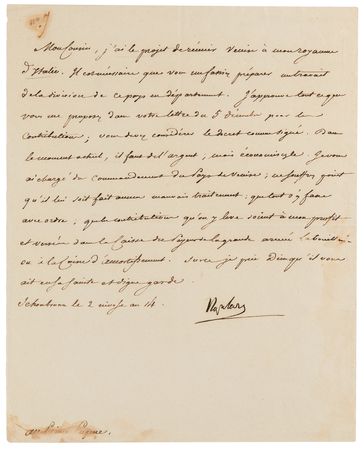 Mon Cousin, j'ai le projet de réunir Venise à mon royaume
d'Italie. Il est nécessaire que vous me fassiez préparer un travail
de la division de ce pays en département. J'approuve tout ce que
vous me proposez dans votre lettre du 5 decembre pour les
Contributions; vous devez considérer le decret comme signé. Dans
le moment actuel, il faut de l'argent, mais économisez le. Je vous
ai chargé du commandement du Pays de Venise; ne souffrez point
qu'il lui soit fait aucun mauvais traitement; que tout s'y fasse
avec ordre; que les contributions qu'on y leve soient à mon profit
et versées dans la Caisse du Payeur de la grande armée
ou à la Caisse d'amortissement. Sur ce je prie Dieu qu'il vous
ait en sa sainte et digne garde
Schonbrunn le 2 nivose an 14.
Napoleon
au Prince Eugene.